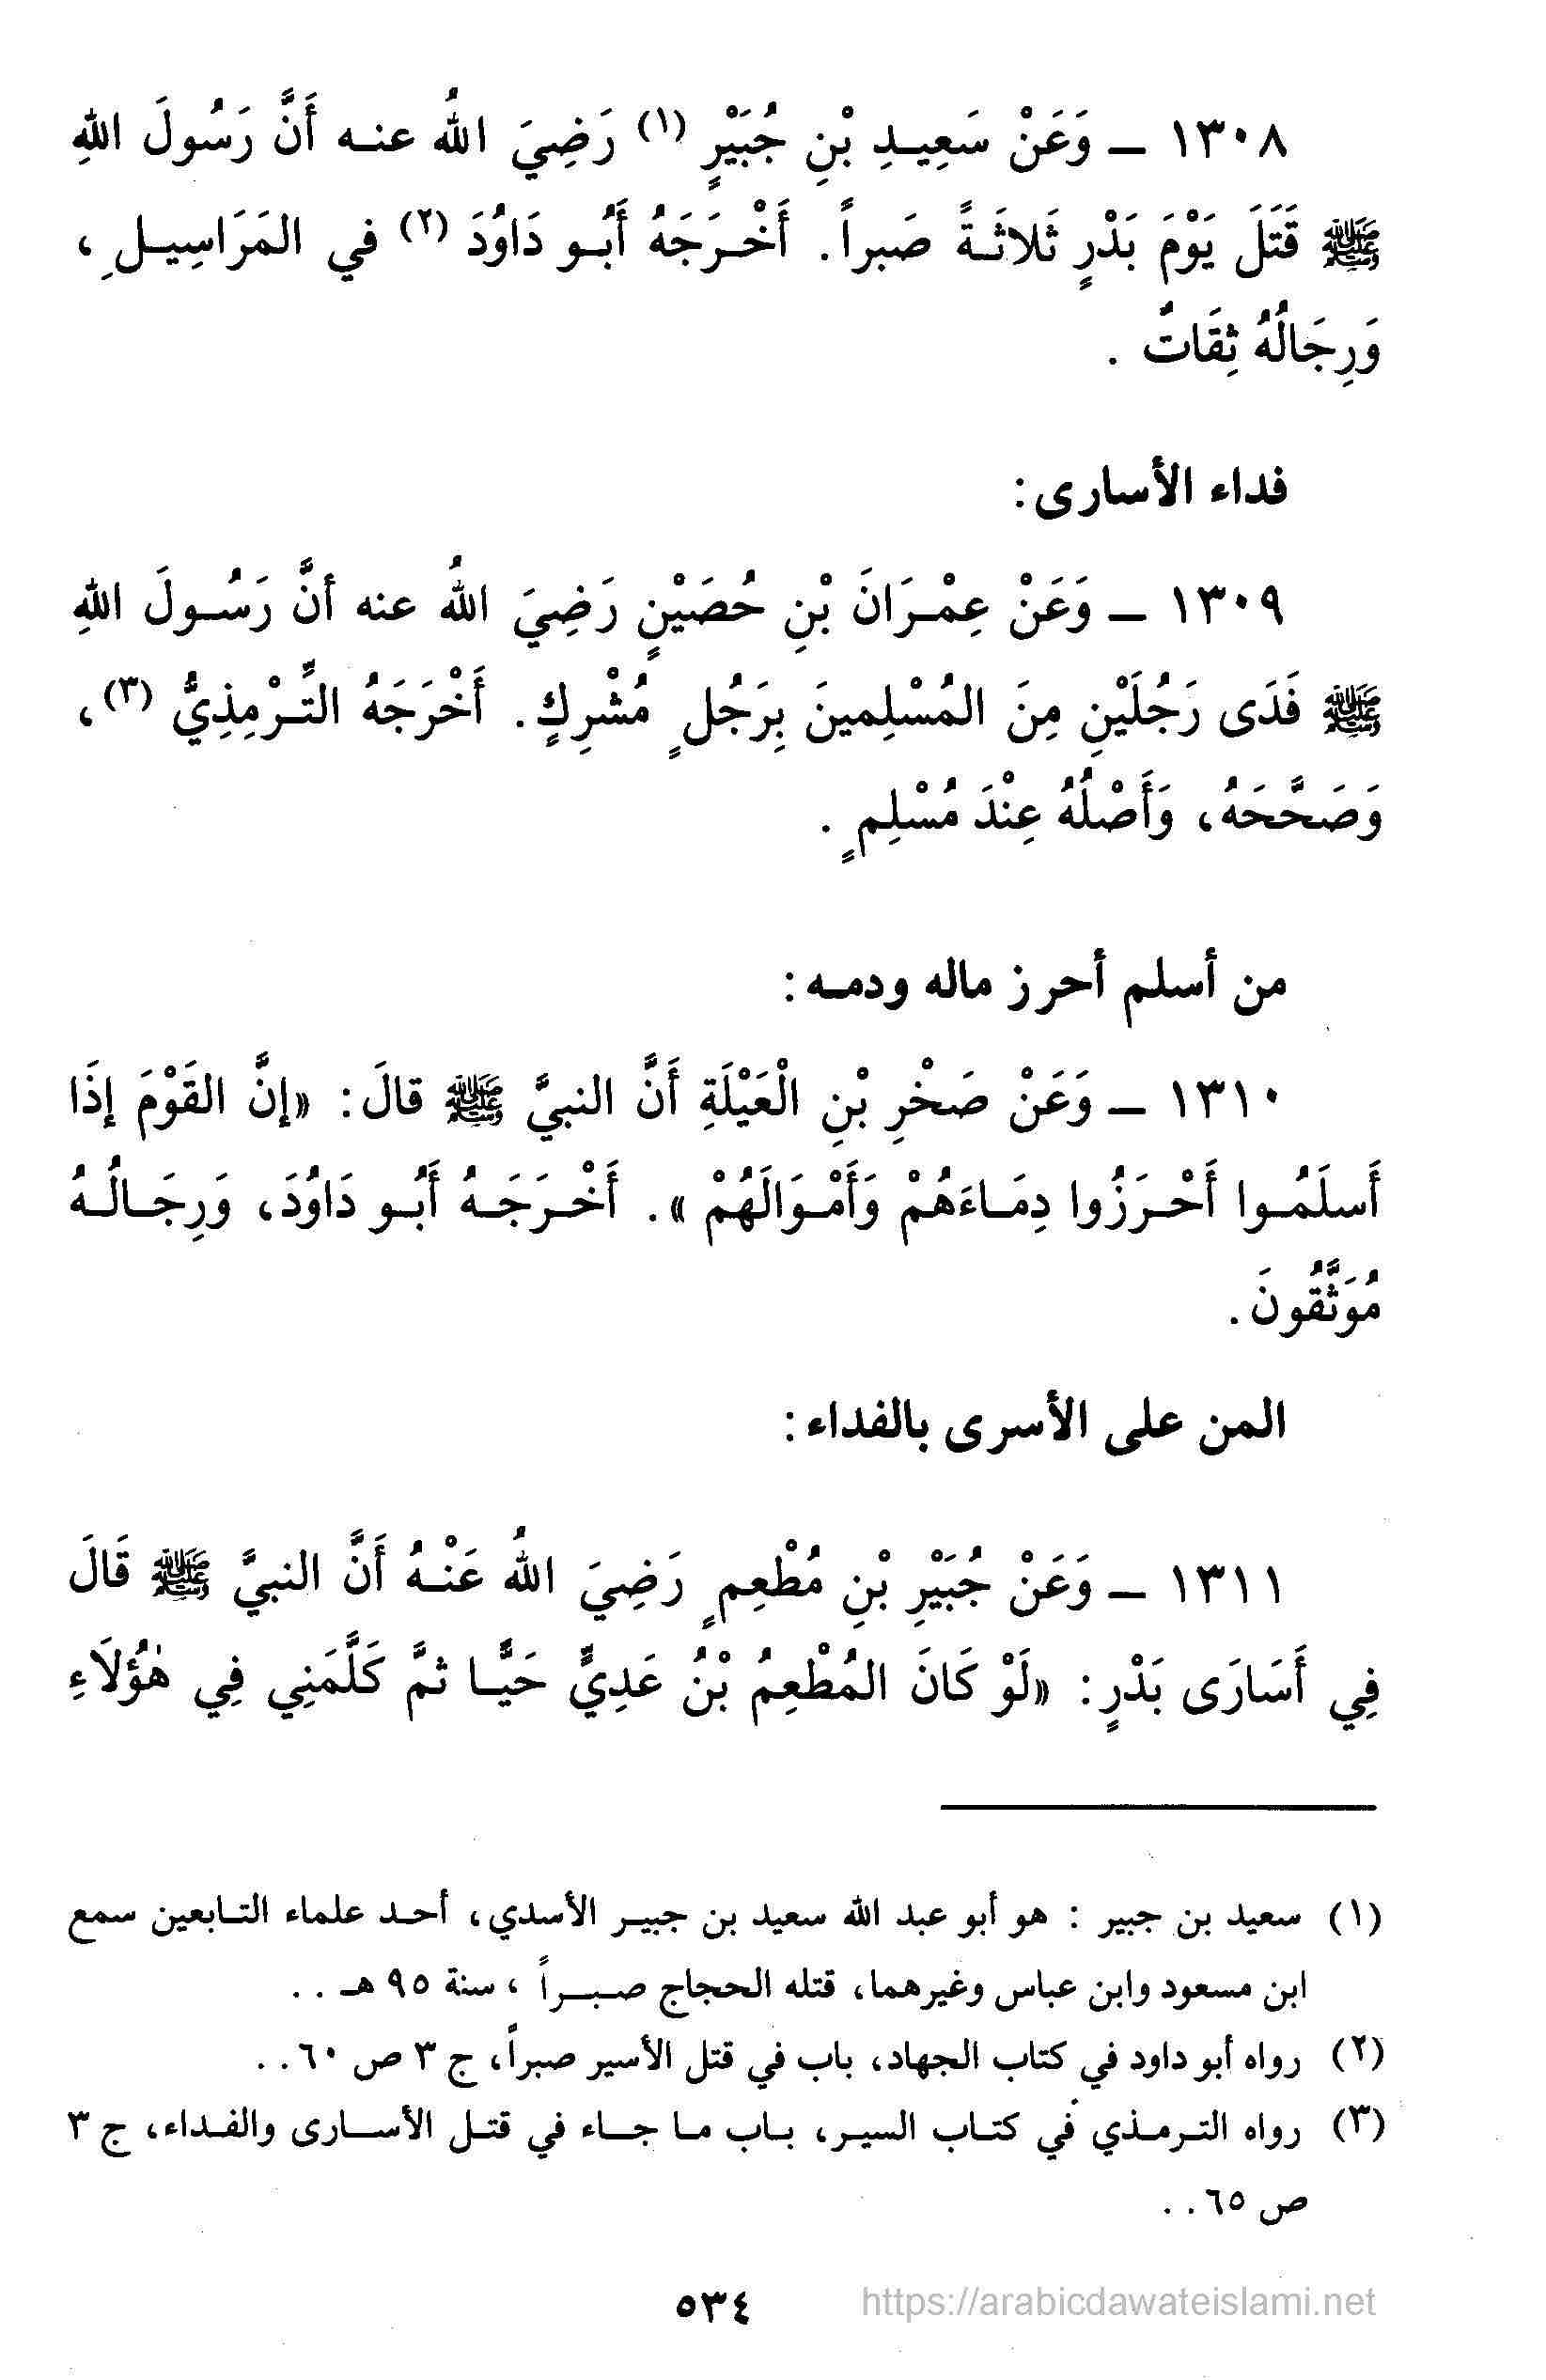 ١٣٠٨ ـ وَعَنْ سَعِيـدِ بْنِ جُبَيْرٍ (١) رَضِيَ اللهُ عنـه أَنَّ رَسُولَ اللهِ
ﷺ قَتَلَ يَوْمَ بَدْرٍ ثَلاثَـةً صَبراً. أَخْـرَجَهُ أَبُـو دَاوُدَ (٢) في المَرَاسِيـلِ،
وَرِجَالُهُ ثِقَاتٌ .
فداء الأسارى:
١٣٠٩ ـ وَعَنْ عِمْـرَانَ بْنِ حُصَيْنٍ رَضِيَ اللهُ عنه أنَّ رَسُـولَ اللهِ
ﷺ فَدَى رَجُلَيْنِ مِنَ المُسْلِمينَ بِرَجُلٍ مُشْرِكٍ. أَخْرَجَهُ التِّـرْمِذِيُّ (٣)،
وَصَحَّحَهُ، وَأَصْلُهُ عِنْدَ مُسْلِمٍ .
من أسلم أحرز ماله ودمـه:
١٣١٠ ـ وَعَنْ صَخْرِ بْنِ الْعَيْلَةِ أَنَّ النبيَّ ﷺ قالَ: «إنَّ القَوْمَ إذَا
أَسلَمُـوا أَحْـرَزُوا دِمَـاءَهُمْ وَأَمْـوَالَهُمْ». أَخْـرَجَـهُ أَبُـو دَاوُدَ، وَرِجَـالُـهُ
مُوَثَّقُونَ.
المن على الأسرى بالفداء:
١٣١١ ـ وَعَنْ جُبَيْرِ بْنِ مُطْعِمٍ رَضِيَ اللهُ عَنْـهُ أَنَّ النبيَّ ﷺ قَالَ
فِي أَسَارَى بَدْرٍ: «لَوْ كَانَ المُطْعِمُ بْنُ عَدِيٍّ حَيًّـا ثمَّ كَلَّمَنِي فِي هٰؤُلَاءِ
(١) سعيد بن جبير : هو أبو عبد الله سعيد بن جبيـر الأسدي، أحـد علماء التـابعين سمع
ابن مسعود وابن عباس وغيرهما، قتله الحجاج صبـراً، سنة ٩٥ هـ . .
(٢) رواه أبو داود في كتاب الجهاد، باب في قتل الأسير صبراً، ج ٣ ص ٦٠. .
(٣) رواه التـرمـذي في كتـاب السيـر، بـاب مـا جـاء في قتـل الأسـارى والفـداء، ج ٣
ص ٦٥. .
٥٣٤
https://arabicdawateislami.net